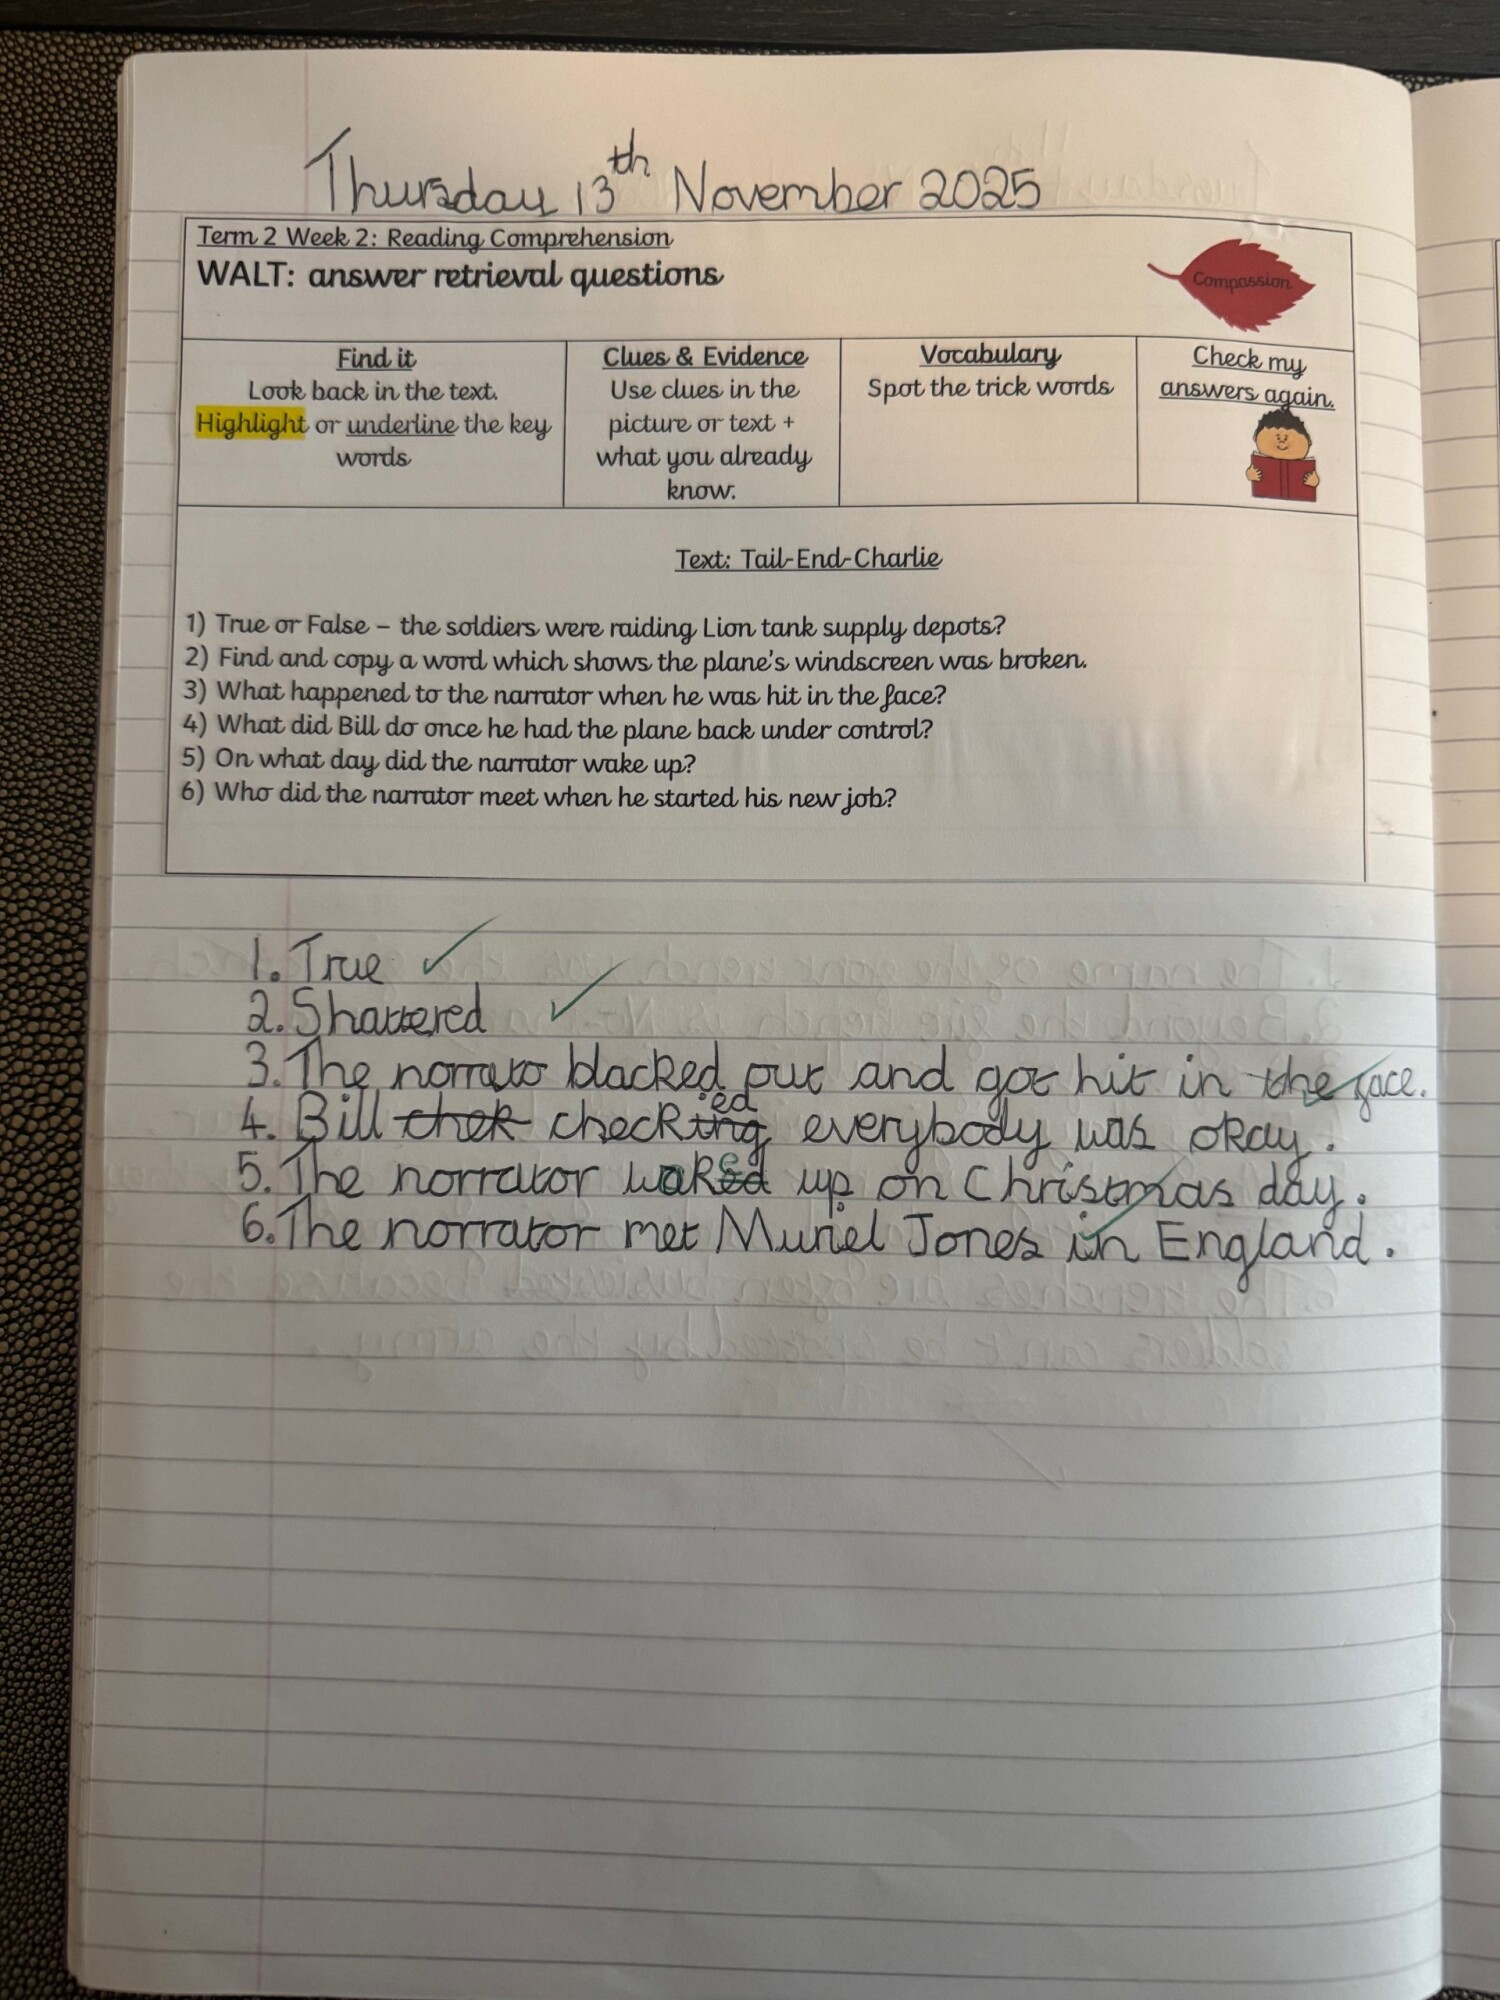 Thursday 13th November 2025
Term 2 Week 2: Reading Comprehension
WALT: answer retrieval questions
Compassion
Find it
Look back in the text.
Highlight or underline the key
words
Clues & Evidence
Use clues in the
picture or text +
what you already
know.
Vocabulary
Spot the trick words
Check my
answers again.
Text: Tail-End-Charlie
1) True or False – the soldiers were raiding Lion tank supply depots?
2) Find and copy a word which shows the plane's windscreen was broken.
3) What happened to the narrator when he was hit in the face?
4) What did Bill do once he had the plane back under control?
5) On what day did the narrator wake up?
6) Who did the narrator meet when he started his new job?
1. True
2. Shattered
3. The norrato blacked out and got hit in the face.
4. Bill chek checking ed everybody was okay.
5. The norrator woke up on Christmas day.
6. The norrator met Muriel Jones in England.